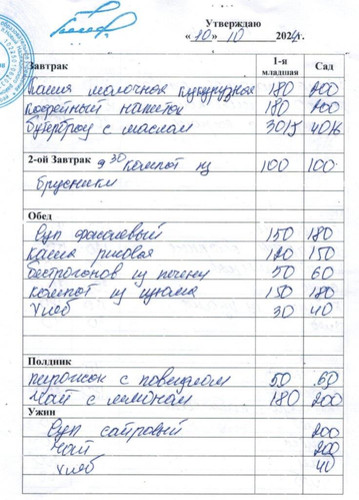 Утверждаю
«10» 10 2024г.
Завтрак 1-я младшая Сад
Каша молочная кукурузная 180 200
Кофейный напиток 180 200
Бутерброд с маслом 30/5 40/6
2-ой Завтрак 9 30 компот из 100 100
брусники
Обед
Суп фасолевый 150 180
Каша рисовая 120 150
Бестрогонов из печени 50 60
Компот из изюма 150 180
Хлеб 30 40
Полдник
Пирожок с повидлом 50 60
Чай с лимоном 180 200
Ужин
Суп сайровый 200
Чай 200
Хлеб 40